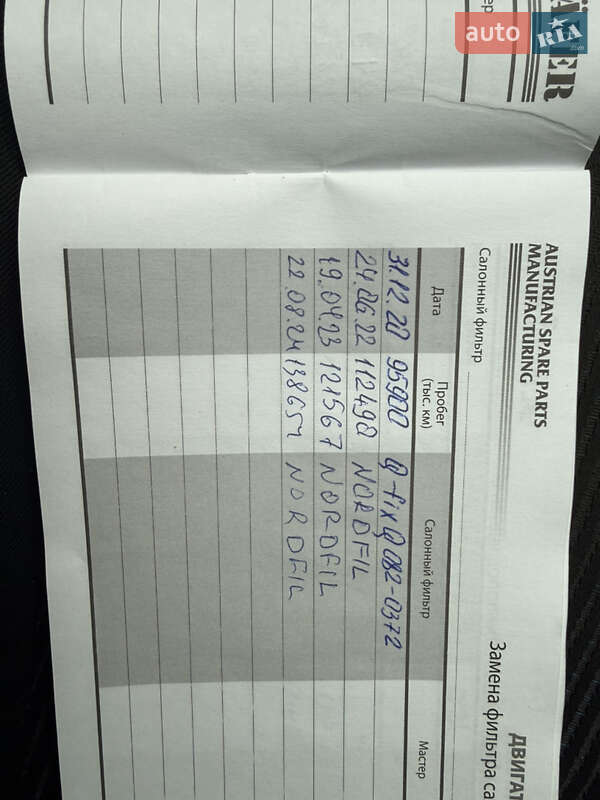 auto RIA .com
AUSTRIAN SPARE PARTS
MANUFACTURING
Салонный фильтр
Замена фильтра са
ДВИГАТ
Дата Пробег (тыс. км) Салонный фильтр Мастер
31.12.20 95900 Q-fix Q082-0372
24.06.22 112490 NORDFIL
19.04.23 121567 NORDFIL
22.08.24 138654 NORDFIL